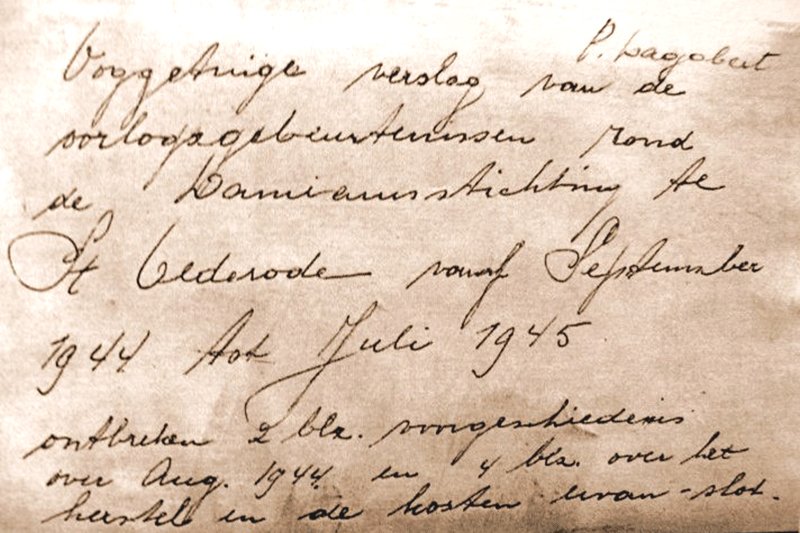 P. Dagobert
Ooggetuige verslag van de
oorlogsgebeurtenissen rond
de Damiaansstichting te
St Oedenrode vanaf September
1944 tot Juli 1945
ontbreken 2 blz. voorgeschiedenis
over Aug. 1944 en 4 blz. over het
herstel en de kosten ervan - slot.